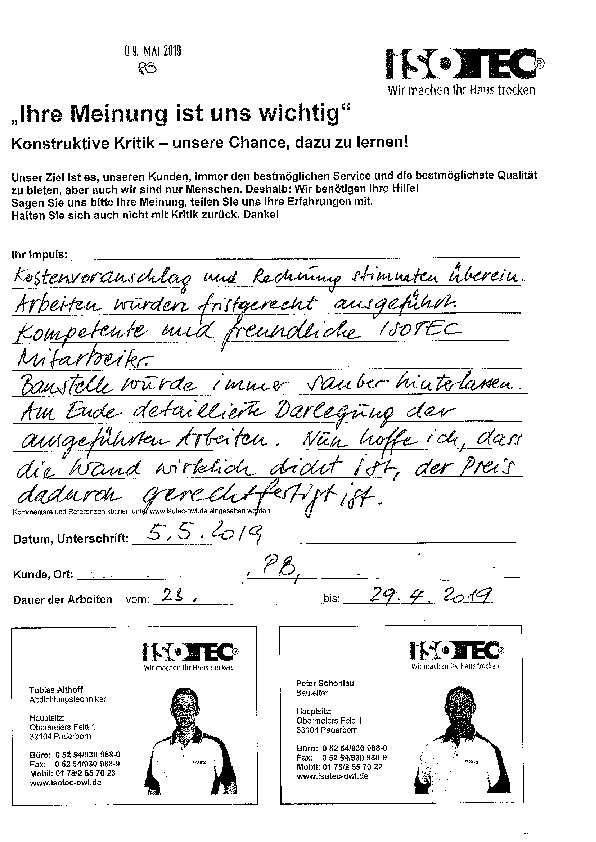 09. MAI 2019
PB
ISOTEC®
Wir machen Ihr Haus trocken
„Ihre Meinung ist uns wichtig“
Konstruktive Kritik – unsere Chance, dazu zu lernen!
Unser Ziel ist es, unseren Kunden, immer den bestmöglichen Service und die bestmöglichste Qualität
zu bieten, aber auch wir sind nur Menschen. Deshalb: Wir benötigen Ihre Hilfe!
Sagen Sie uns bitte Ihre Meinung, teilen Sie uns Ihre Erfahrungen mit.
Halten Sie sich auch nicht mit Kritik zurück. Danke!
Ihr Impuls:
Kostenvoranschlag und Rechnung stimmten überein.
Arbeiten wurden fristgerecht ausgeführt.
Kompetente und freundliche ISOTEC
Mitarbeiter.
Baustelle wurde immer sauber hinterlassen.
Am Ende detaillierte Darlegung der
ausgeführten Arbeiten. Nun hoffe ich, dass
die Wand wirklich dicht ist, der Preis
dadurch gerechtfertigt ist.
Kommentare und Referenzen können unter www.isotec-owl.de eingesehen werden
Datum, Unterschrift: 5.5.2019
Kunde, Ort: , PB,
Dauer der Arbeiten vom: 23. bis: 29.4.2019
ISOTEC®
Wir machen Ihr Haus trocken
Tobias Althoff
Abdichtungstechniker
Hauptsitz
Obermeiers Feld 1
33104 Paderborn
Büro: 0 52 54/930 988-0
Fax: 0 52 54/930 988-9
Mobil: 01 78/2 55 70 23
www.isotec-owl.de
ISOTEC®
Wir machen Ihr Haus trocken
Peter Schönlau
Bauleiter
Hauptsitz
Obermeiers Feld 1
33104 Paderborn
Büro: 0 52 54/930 988-0
Fax: 0 52 54/930 988-9
Mobil: 01 78/2 55 70 22
www.isotec-owl.de